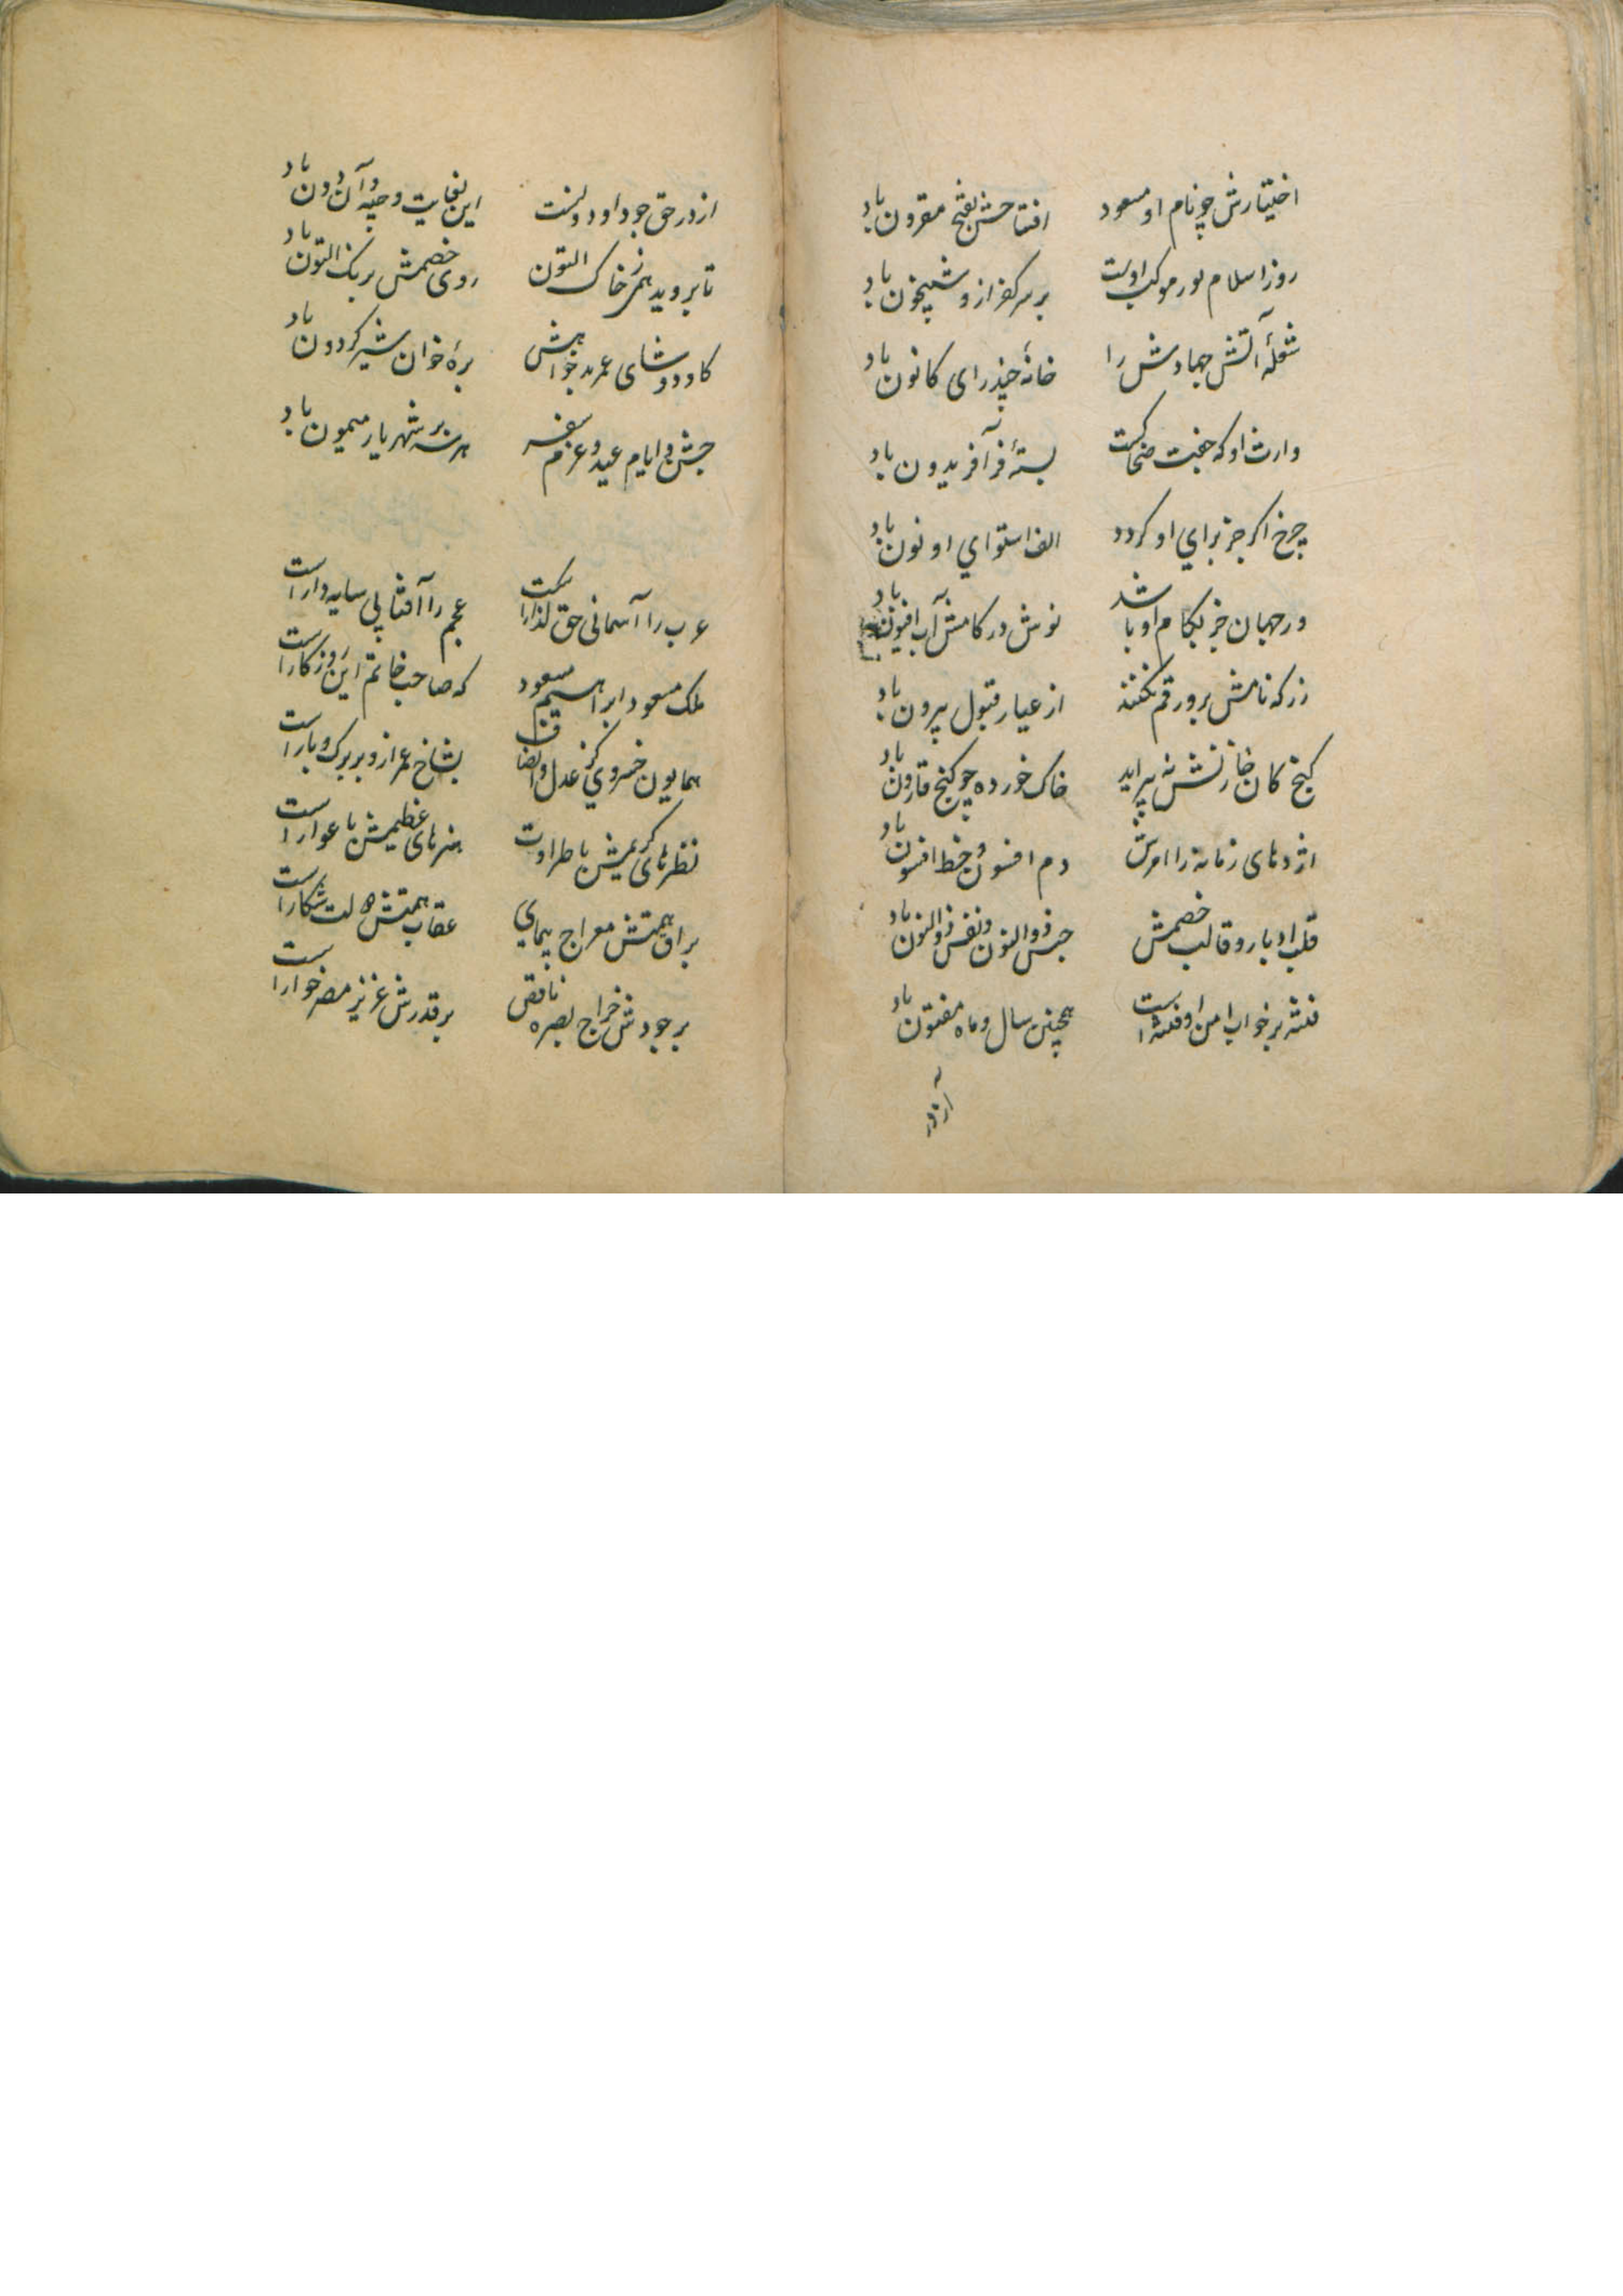 اختیارش چو نام او مسعود افتتاحش بفتح مقرون باد
روز اسلام نور موکب اوست بر سر کفر ازو شبیخون باد
شعلهٔ آتش جهادش را خانهٔ چیذرای کانون باد
وارث او که جفت ضحاکست بستهٔ فر آفریدون باد
چرخ اگر جز برای او گردد الف استوای او نون باد
ور جهان جز بکام او باشد نوش در کامش آب افیون باد
زر که نامش برو رقم نکنند از عیار قبول بیرون باد
گنج کان خازنش نه پیراید خاک خورده چو گنج قارون باد
اژدهای زمانه را امرش دم افسون و خط افسون باد
قلب ادبار و قالب خصمش حبس ذوالنون و نفس ذوالنون باد
فتنه بر خواب امن او فتنه است همچنین سال و ماه مفتون باد
از در
از در حق جود او دولت این نهایت و جیه و آن دون باد
تا بروید همی ز خاک التون روی خصمش برنگ التون باد
گاو دوشای عمر بدخواهش برهٔ خوان شیر گردون باد
جشن و ایام عید و عزم سفر هر سه بر شهریار میمون باد
عرب را آسمانی حق گذارست عجم را آفتابی سایه دارست
ملک مسعود ابراهیم مسعود که صاحب خاتم این روزگارست
همایون خسروی کز عدل و انصاف بشاخ عمر ازو بر برگ و بارست
نظرهای کریمش با طراوت هنرهای عظیمش با عوارست
براق همتش معراج پیمای عقاب همتش دولت شکارست
بر جودش خراج بصره ناقص بر قدرش عزیز مصر خوارست